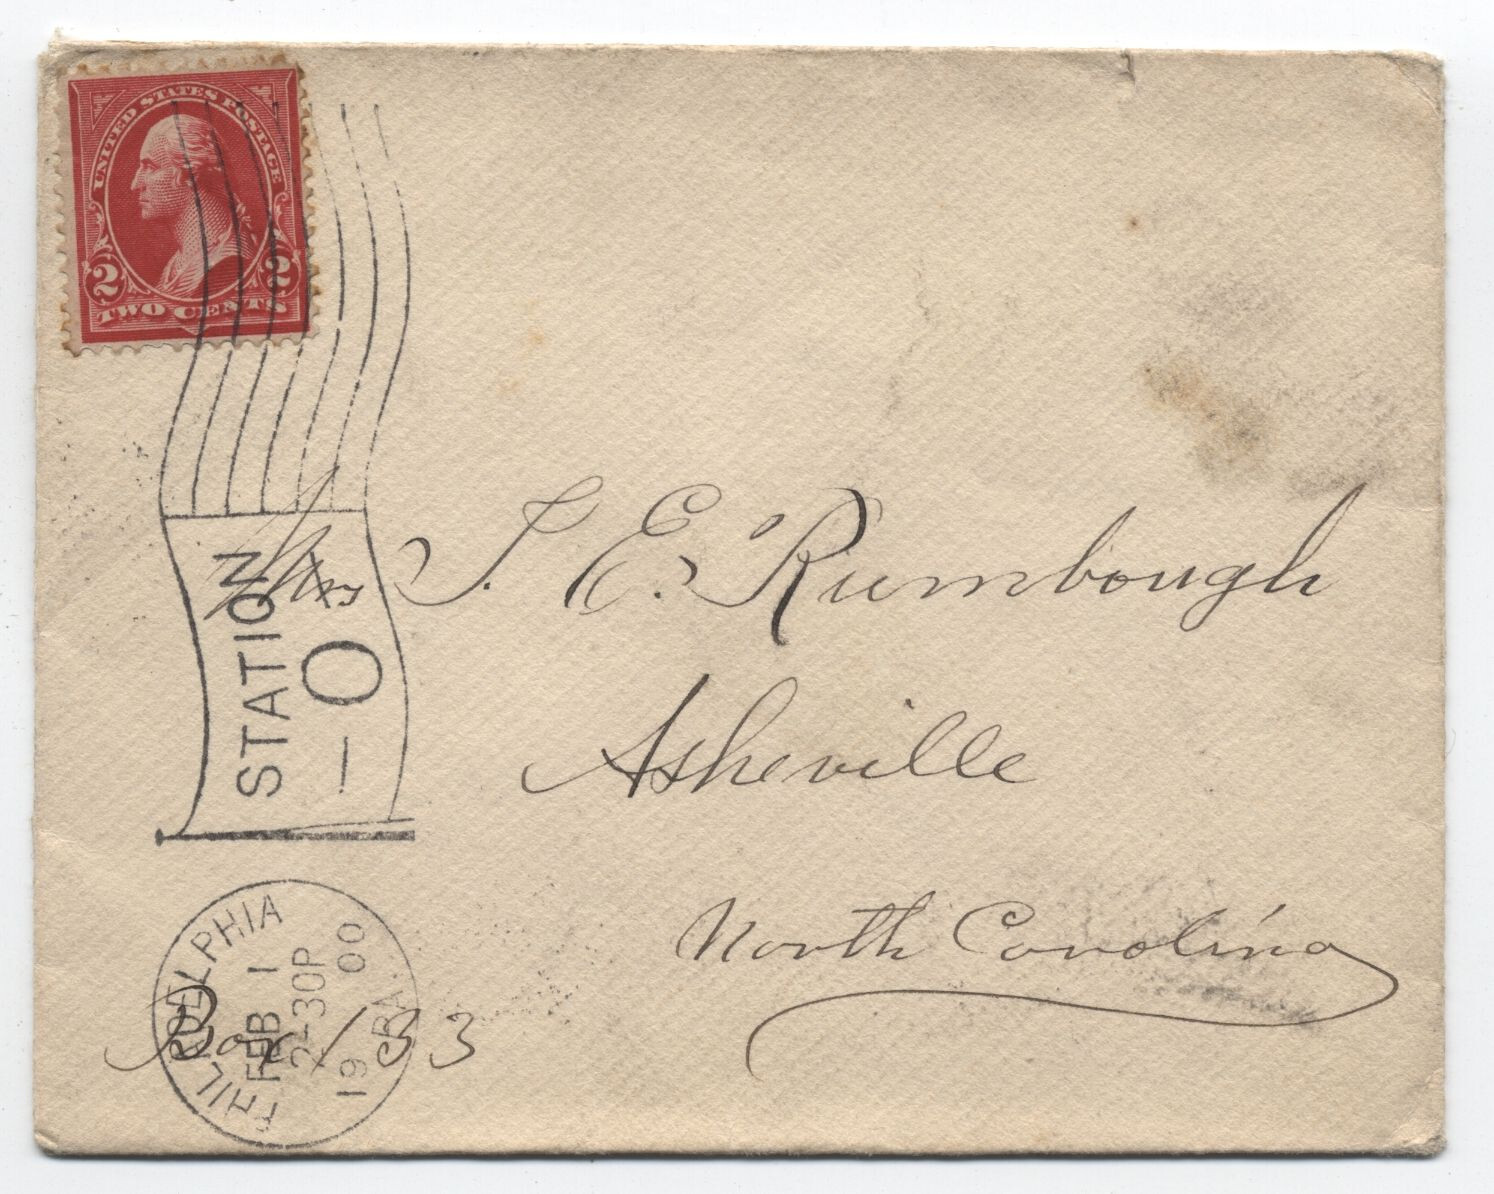 UNITED STATES POSTAGE
2 2
TWO CENTS
STATION
- O
Mrs J. E. Rumbough
Asheville
North Carolina
Box 133
PHILADELPHIA
FEB 1
2-30P
19 00
PA.